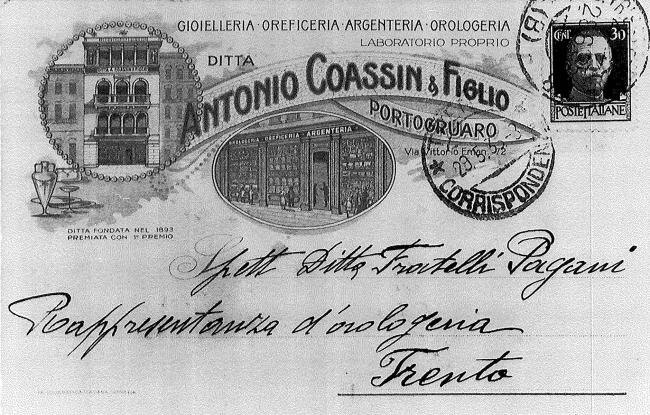 GIOIELLERIA · OREFICERIA · ARGENTERIA · OROLOGERIA
LABORATORIO PROPRIO
DITTA
ANTONIO COASSIN & FIGLIO
PORTOGRUARO
Via Vittorio Eman.
OROLOGERIA · OREFICERIA · ARGENTERIA
DITTA FONDATA NEL 1893
PREMIATA CON 1º PREMIO
CENT. 30
POSTE ITALIANE
CORRISPONDEN
Spett Ditta Fratelli Pagani
Rappresentanza d'orologeria
Trento